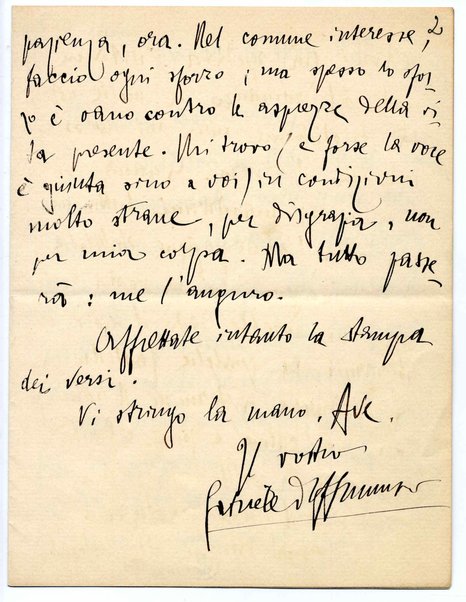 2
pazienza, ora. Nel comune interesse,
faccio ogni sforzo; ma spesso lo sfor-
zo è vano contro le asprezze della vi-
ta presente. Mi trovo (e forse la voce
è giunta sino a voi) in condizioni
molto strane, per disgrazia, non
per mia colpa. Ma tutto passe-
rà: me l'auguro.
Affrettate intanto la stampa
dei versi.
Vi stringo la mano. Ave.
Il vostro
Gabriele d'Annunzio